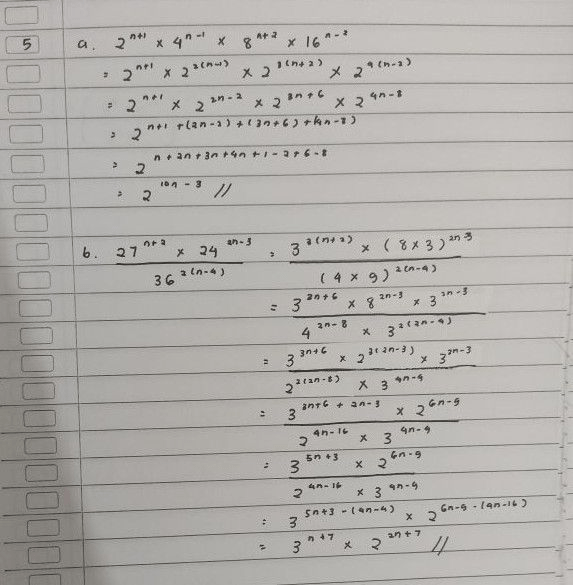 5 a. 2^(n+1) × 4^(n-1) × 8^(n+2) × 16^(n-2)
= 2^(n+1) × 2^(2(n-1)) × 2^(3(n+2)) × 2^(4(n-2))
= 2^(n+1) × 2^(2n-2) × 2^(3n+6) × 2^(4n-8)
= 2^(n+1 +(2n-2)+(3n+6)+(4n-8))
= 2^(n+2n+3n+4n+1-2+6-8)
= 2^(10n-3) //
b. (27^(n+2) × 24^(2n-3)) / (36^(2(n-4))) = (3^(3(n+2)) × (8×3)^(2n-3)) / ((4×9)^(2(n-4)))
= (3^(3n+6) × 8^(2n-3) × 3^(2n-3)) / (4^(2n-8) × 3^(2(2n-4)))
= (3^(3n+6) × 2^(3(2n-3)) × 3^(2n-3)) / (2^(2(2n-8)) × 3^(4n-4))
= (3^(3n+6+2n-3) × 2^(6n-9)) / (2^(4n-16) × 3^(4n-4))
= (3^(5n+3) × 2^(6n-9)) / (2^(4n-16) × 3^(4n-4))
= 3^(5n+3-(4n-4)) × 2^(6n-9-(4n-16))
= 3^(n+7) × 2^(2n+7) //